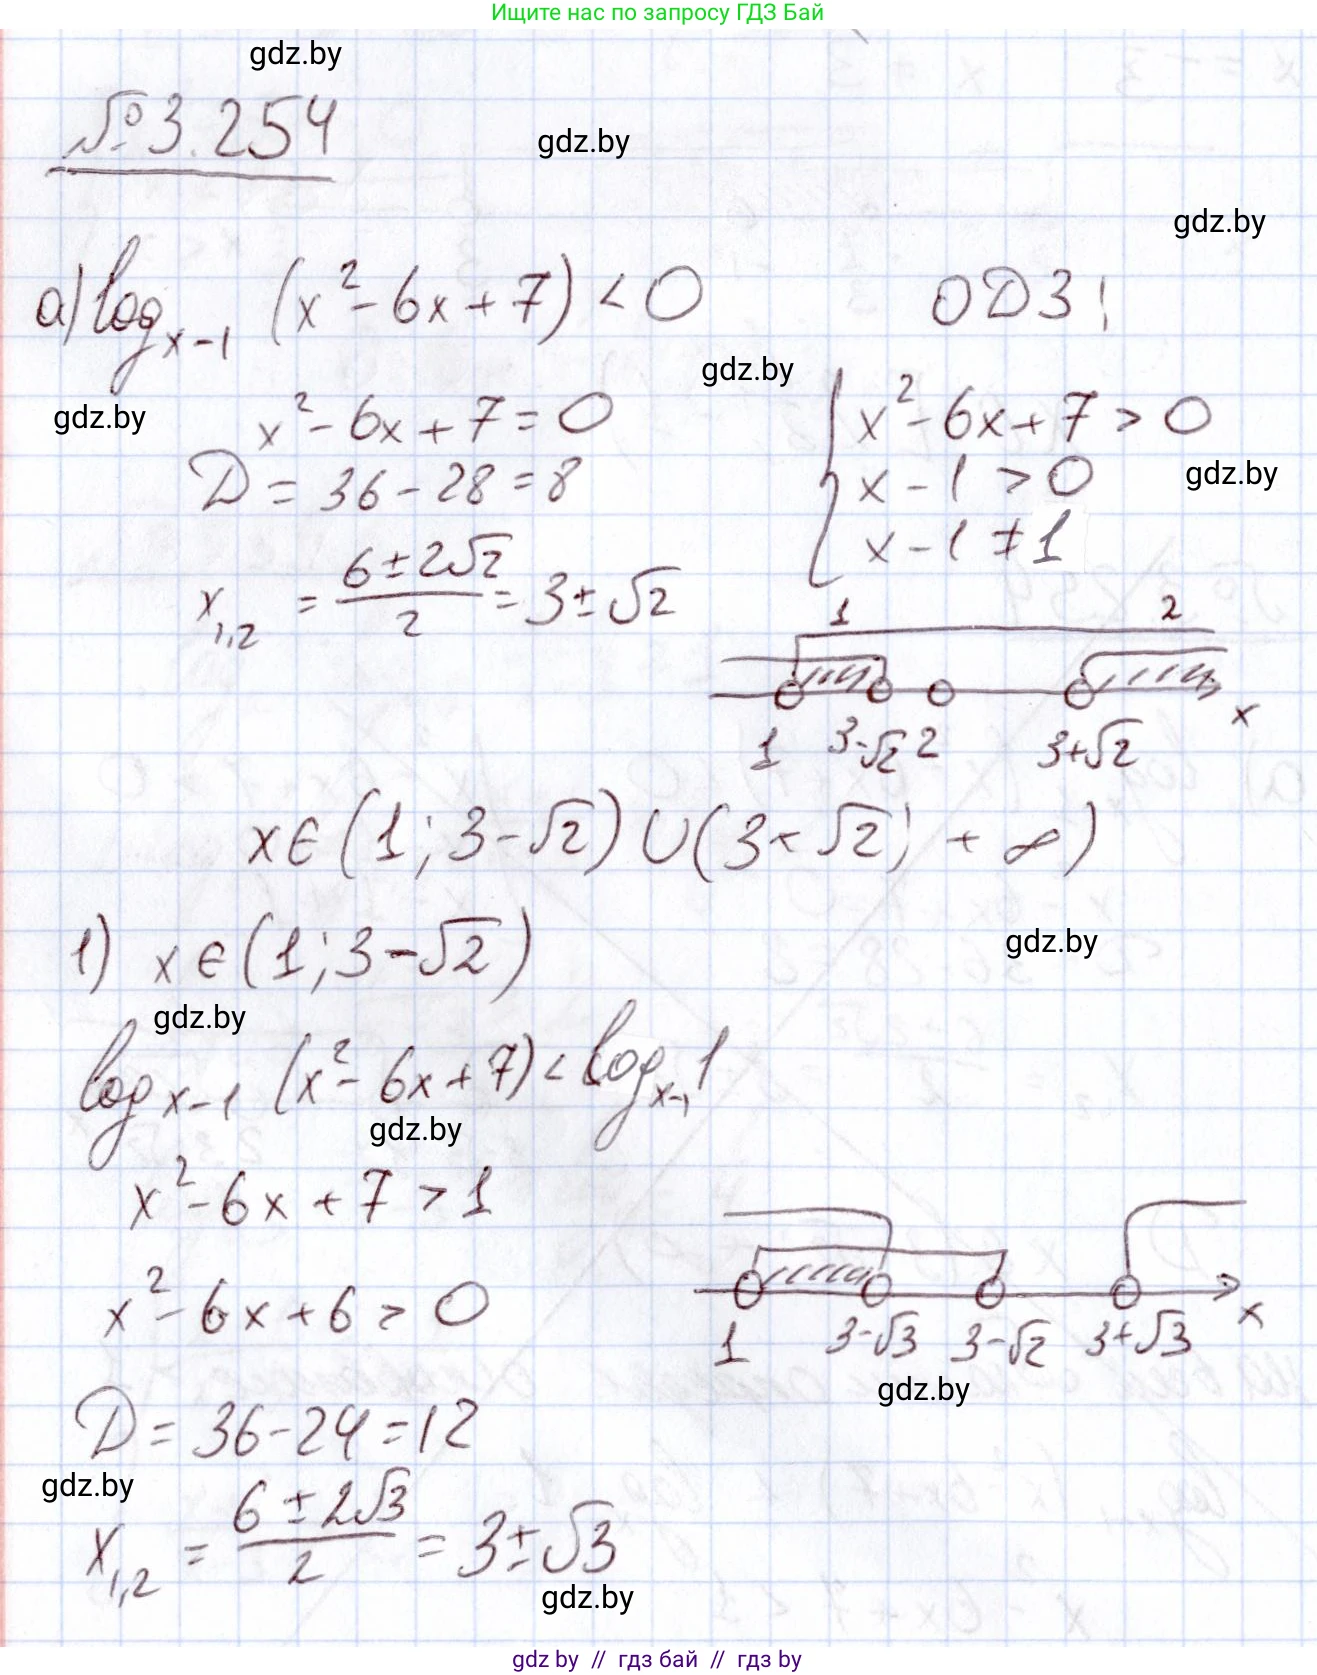 Ищите нас по запросу ГДЗ Бай
gdz.by
№3.254
gdz.by
gdz.by
а) log_{x-1} (x² - 6x + 7) < 0
ОДЗ:
gdz.by
gdz.by
x² - 6x + 7 = 0
D = 36 - 28 = 8
x_{1,2} = (6 ± 2√2)/2 = 3 ± √2
x² - 6x + 7 > 0
gdz.by
x - 1 > 0
x - 1 ≠ 1
1 2
1 3-√2 2 3+√2 x
x ∈ (1; 3 - √2) ∪ (3 + √2; +∞)
1) x ∈ (1; 3 - √2)
gdz.by
gdz.by
log_{x-1} (x² - 6x + 7) < log_{x-1} 1
gdz.by
x² - 6x + 7 > 1
x² - 6x + 6 > 0
1 3-√3 3-√2 3+√3 x
gdz.by
D = 36 - 24 = 12
gdz.by
x_{1,2} = (6 ± 2√3)/2 = 3 ± √3
gdz.by
gdz by // гдз бай // гдз by